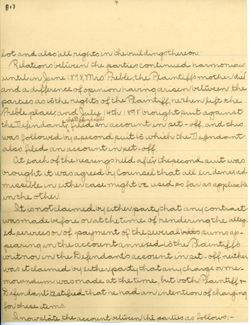 lot and also all rights in the buildings thereon.
Relations between the parties continued harmonious
until in June 1898, Mrs. Preble, the Plaintiff's mother died
and a difference of opinion having arisen between the
parties as to the rights of the Plaintiff, he then left the
Preble place, and July 14th 1898 brought suit against
the Defendant, filed in account in set-off, and this
was followed by a second suit to which the Defendant
also filed an account in set-off.
At each of the hearings held after the second suit was
brought it was agreed by Counsel that all evidence ad-
missible in either case might be used so far as applicable
in the other.
It is not claimed by either party that any contract
was made before or at the time of rendering the alleg-
ed services or of payment of the several sums ap-
pearing in the account annexed to the Plaintiff's
suit nor in the Defendant's account in set-off neither
was it claimed by either party that any charge or mem-
orandum was made at the time, but both Plaintiff and
Defendant testified that he had an intention of charging
for these items.
I now state the account between the parties as follows:-